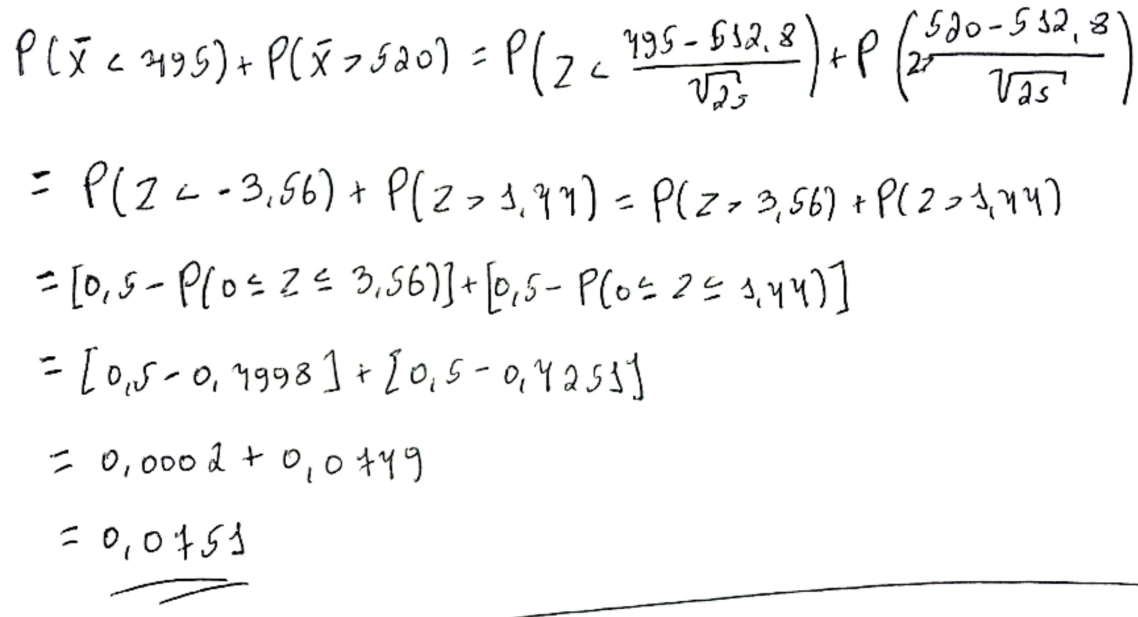 P(x̄ < 495) + P(x̄ > 520) = P(Z < (495 - 512,8)/√25) + P(Z > (520 - 512,8)/√25)
= P(Z < -3,56) + P(Z > 1,44) = P(Z > 3,56) + P(Z > 1,44)
= [0,5 - P(0 ≤ Z ≤ 3,56)] + [0,5 - P(0 ≤ Z ≤ 1,44)]
= [0,5 - 0,4998] + [0,5 - 0,4251]
= 0,0002 + 0,0749
= 0,0751